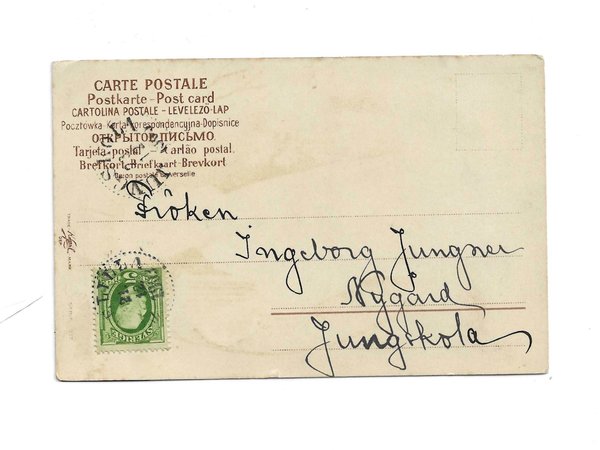 CARTE POSTALE
Postkarte – Post card
CARTOLINA POSTALE – LEVELEZÖ-LAP
Pocztówka – Karta korespondencyjna – Dopisnice
ОТКРЫТОЕ ПИСЬМО.
Tarjeta postal. Cartão postal.
Brefkort – Briefkaart – Brevkort
Union postale universelle
Fröken
Ingeborg Jungner
Nygård
Jungskola